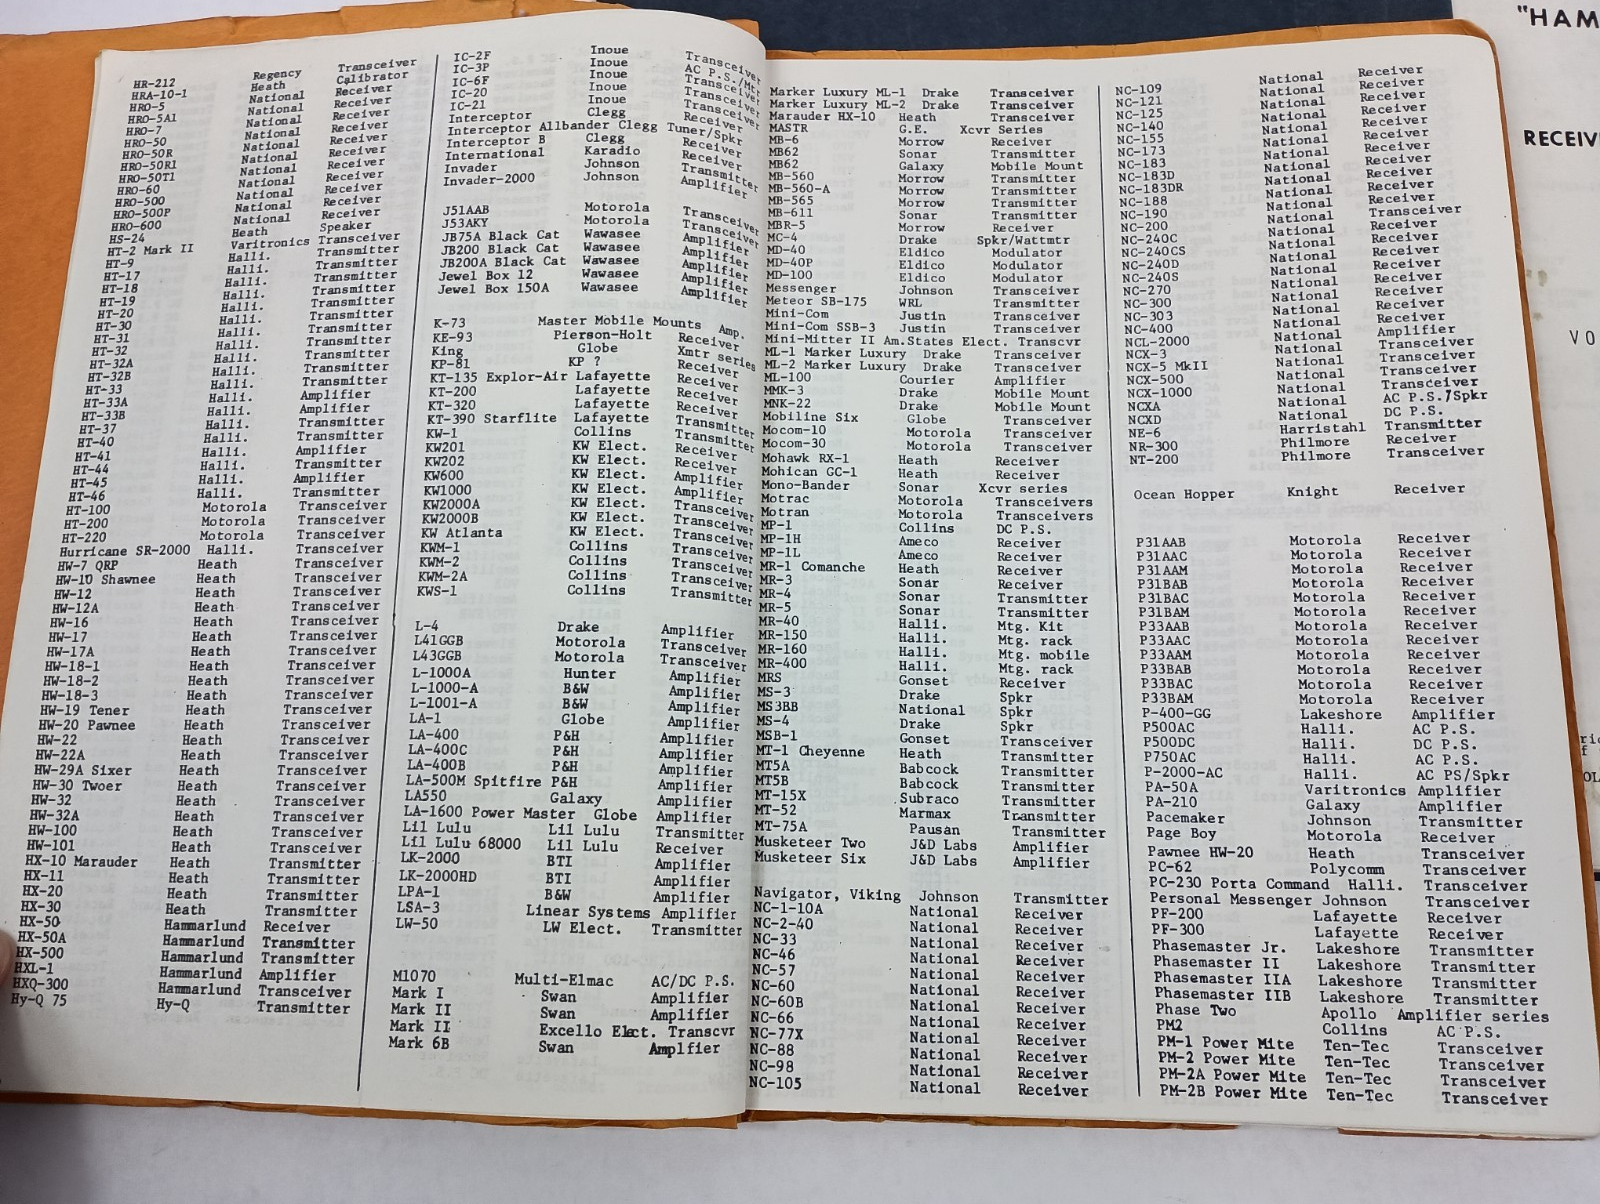 HR-212 Regency Transceiver
HRA-10-1 Heath Calibrator
HRO-5 National Receiver
HRO-5A1 National Receiver
HRO-7 National Receiver
HRO-50 National Receiver
HRO-50R National Receiver
HRO-50R1 National Receiver
HRO-50T1 National Receiver
HRO-60 National Receiver
HRO-500 National Receiver
HRO-500P National Receiver
HRO-600 National Receiver
HS-24 Heath Speaker
HT-2 Mark II Varitronics Transceiver
HT-9 Halli. Transmitter
HT-17 Halli. Transmitter
HT-18 Halli. Transmitter
HT-19 Halli. Transmitter
HT-20 Halli. Transmitter
HT-30 Halli. Transmitter
HT-31 Halli. Transmitter
HT-32 Halli. Transmitter
HT-32A Halli. Transmitter
HT-32B Halli. Transmitter
HT-33 Halli. Transmitter
HT-33A Halli. Amplifier
HT-33B Halli. Amplifier
HT-37 Halli. Transmitter
HT-40 Halli. Transmitter
HT-41 Halli. Amplifier
HT-44 Halli. Transmitter
HT-45 Halli. Amplifier
HT-46 Halli. Transmitter
HT-100 Motorola Transceiver
HT-200 Motorola Transceiver
HT-220 Motorola Transceiver
Hurricane SR-2000 Halli. Transceiver
HW-7 QRP Heath Transceiver
HW-10 Shawnee Heath Transceiver
HW-12 Heath Transceiver
HW-12A Heath Transceiver
HW-16 Heath Transceiver
HW-17 Heath Transceiver
HW-17A Heath Transceiver
HW-18-1 Heath Transceiver
HW-18-2 Heath Transceiver
HW-18-3 Heath Transceiver
HW-19 Tener Heath Transceiver
HW-20 Pawnee Heath Transceiver
HW-22 Heath Transceiver
HW-22A Heath Transceiver
HW-29A Sixer Heath Transceiver
HW-30 Twoer Heath Transceiver
HW-32 Heath Transceiver
HW-32A Heath Transceiver
HW-100 Heath Transceiver
HW-101 Heath Transceiver
HX-10 Marauder Heath Transmitter
HX-11 Heath Transmitter
HX-20 Heath Transmitter
HX-30 Heath Transmitter
HX-50 Hammarlund Receiver
HX-50A Hammarlund Transmitter
HX-500 Hammarlund Transmitter
HXL-1 Hammarlund Amplifier
HXQ-300 Hammarlund Transceiver
Hy-Q 75 Hy-Q Transmitter
IC-2F Inoue Transceiver
IC-3P Inoue AC P.S./Mtr
IC-6F Inoue Transceiver
IC-20 Inoue Transceiver
IC-21 Inoue Transceiver
Interceptor Clegg Receiver
Interceptor Allbander Clegg Tuner/Spkr
Interceptor B Clegg Receiver
International Karadio Receiver
Invader Johnson Transmitter
Invader-2000 Johnson Amplifier
J51AAB Motorola Transceiver
J53AKY Motorola Transceiver
JB75A Black Cat Wawasee Amplifier
JB200 Black Cat Wawasee Amplifier
JB200A Black Cat Wawasee Amplifier
Jewel Box 12 Wawasee Amplifier
Jewel Box 150A Wawasee Amplifier
K-73 Master Mobile Mounts Amp.
KE-93 Pierson-Holt Receiver
King Globe Xmtr series
KP-81 KP ? Receiver
KT-135 Explor-Air Lafayette Receiver
KT-200 Lafayette Receiver
KT-320 Lafayette Receiver
KT-390 Starflite Lafayette Transmitter
KW-1 Collins Transmitter
KW201 KW Elect. Receiver
KW202 KW Elect. Receiver
KW600 KW Elect. Amplifier
KW1000 KW Elect. Amplifier
KW2000A KW Elect. Transceiver
KW2000B KW Elect. Transceiver
KW Atlanta KW Elect. Transceiver
KWM-1 Collins Transceiver
KWM-2 Collins Transceiver
KWM-2A Collins Transceiver
KWS-1 Collins Transmitter
L-4 Drake Amplifier
L41GGB Motorola Transceiver
L43GGB Motorola Transceiver
L-1000A Hunter Amplifier
L-1000-A B&W Amplifier
L-1001-A B&W Amplifier
LA-1 Globe Amplifier
LA-400 P&H Amplifier
LA-400C P&H Amplifier
LA-400B P&H Amplifier
LA-500M Spitfire P&H Amplifier
LA550 Galaxy Amplifier
LA-1600 Power Master Globe Amplifier
Lil Lulu Lil Lulu Transmitter
Lil Lulu 68000 Lil Lulu Receiver
LK-2000 BTI Amplifier
LK-2000HD BTI Amplifier
LPA-1 B&W Amplifier
LSA-3 Linear Systems Amplifier
LW-50 LW Elect. Transmitter
M1070 Multi-Elmac AC/DC P.S.
Mark I Swan Amplifier
Mark II Swan Amplifier
Mark II Excello Elect. Transcvr
Mark 6B Swan Amplfier
Marker Luxury ML-1 Drake Transceiver
Marker Luxury ML-2 Drake Transceiver
Marauder HX-10 Heath Transceiver
MASTR G.E. Xcvr Series
MB-6 Morrow Receiver
MB62 Sonar Transmitter
MB62 Galaxy Mobile Mount
MB-560 Morrow Transmitter
MB-560-A Morrow Transmitter
MB-565 Morrow Transmitter
MB-611 Sonar Transmitter
MBR-5 Morrow Receiver
MC-4 Drake Spkr/Wattmtr
MD-40 Eldico Modulator
MD-40P Eldico Modulator
MD-100 Eldico Modulator
Messenger Johnson Transceiver
Meteor SB-175 WRL Transmitter
Mini-Com Justin Transceiver
Mini-Com SSB-3 Justin Transceiver
Mini-Mitter II Am.States Elect. Transcvr
ML-1 Marker Luxury Drake Transceiver
ML-2 Marker Luxury Drake Transceiver
ML-100 Courier Amplifier
MMK-3 Drake Mobile Mount
MNK-22 Drake Mobile Mount
Mobiline Six Globe Transceiver
Mocom-10 Motorola Transceiver
Mocom-30 Motorola Transceiver
Mohawk RX-1 Heath Receiver
Mohican GC-1 Heath Receiver
Mono-Bander Sonar Xcvr series
Motrac Motorola Transceivers
Motran Motorola Transceivers
MP-1 Collins DC P.S.
MP-1H Ameco Receiver
MP-1L Ameco Receiver
MR-1 Comanche Heath Receiver
MR-3 Sonar Receiver
MR-4 Sonar Transmitter
MR-5 Sonar Transmitter
MR-40 Halli. Mtg. Kit
MR-150 Halli. Mtg. rack
MR-160 Halli. Mtg. mobile
MR-400 Halli. Mtg. rack
MRS Gonset Receiver
MS-3 Drake Spkr
MS3BB National Spkr
MS-4 Drake Spkr
MSB-1 Gonset Transceiver
MT-1 Cheyenne Heath Transmitter
MT5A Babcock Transmitter
MT5B Babcock Transmitter
MT-15X Subraco Transmitter
MT-52 Marmax Transmitter
MT-75A Pausan Transmitter
Musketeer Two J&D Labs Amplifier
Musketeer Six J&D Labs Amplifier
Navigator, Viking Johnson Transmitter
NC-1-10A National Receiver
NC-2-40 National Receiver
NC-33 National Receiver
NC-46 National Receiver
NC-57 National Receiver
NC-60 National Receiver
NC-60B National Receiver
NC-66 National Receiver
NC-77X National Receiver
NC-88 National Receiver
NC-98 National Receiver
NC-105 National Receiver
NC-109 National Receiver
NC-121 National Receiver
NC-125 National Receiver
NC-140 National Receiver
NC-155 National Receiver
NC-173 National Receiver
NC-183 National Receiver
NC-183D National Receiver
NC-183DR National Receiver
NC-188 National Receiver
NC-190 National Receiver
NC-200 National Transceiver
NC-240C National Receiver
NC-240CS National Receiver
NC-240D National Receiver
NC-240S National Receiver
NC-270 National Receiver
NC-300 National Receiver
NC-303 National Receiver
NC-400 National Receiver
NCL-2000 National Amplifier
NCX-3 National Transceiver
NCX-5 MkII National Transceiver
NCX-500 National Transceiver
NCX-1000 National Transceiver
NCXA National AC P.S./Spkr
NCXD National DC P.S.
NE-6 Harristahl Transmitter
NR-300 Philmore Receiver
NT-200 Philmore Transceiver
Ocean Hopper Knight Receiver
P31AAB Motorola Receiver
P31AAC Motorola Receiver
P31AAM Motorola Receiver
P31BAB Motorola Receiver
P31BAC Motorola Receiver
P31BAM Motorola Receiver
P33AAB Motorola Receiver
P33AAC Motorola Receiver
P33AAM Motorola Receiver
P33BAB Motorola Receiver
P33BAC Motorola Receiver
P33BAM Motorola Receiver
P-400-GG Lakeshore Amplifier
P500AC Halli. AC P.S.
P500DC Halli. DC P.S.
P750AC Halli. AC P.S.
P-2000-AC Halli. AC PS/Spkr
PA-50A Varitronics Amplifier
PA-210 Galaxy Amplifier
Pacemaker Johnson Transmitter
Page Boy Motorola Receiver
Pawnee HW-20 Heath Transceiver
PC-62 Polycomm Transceiver
PC-230 Porta Command Halli. Transceiver
Personal Messenger Johnson Transceiver
PF-200 Lafayette Receiver
PF-300 Lafayette Receiver
Phasemaster Jr. Lakeshore Transmitter
Phasemaster II Lakeshore Transmitter
Phasemaster IIA Lakeshore Transmitter
Phasemaster IIB Lakeshore Transmitter
Phase Two Apollo Amplifier series
PM2 Collins AC P.S.
PM-1 Power Mite Ten-Tec Transceiver
PM-2 Power Mite Ten-Tec Transceiver
PM-2A Power Mite Ten-Tec Transceiver
PM-2B Power Mite Ten-Tec Transceiver
"HAM
RECEIV
VO